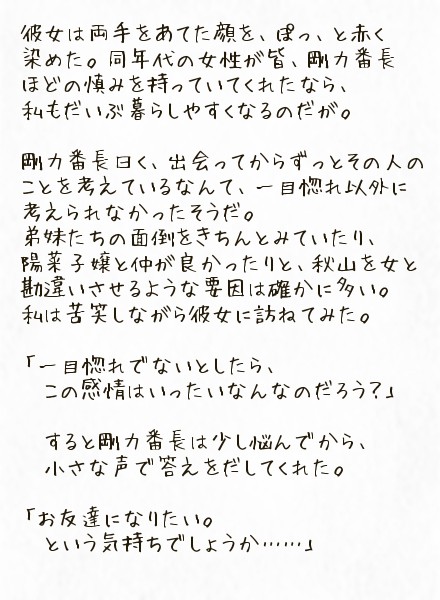 彼女は両手をあてた顔を、ぽっ、と赤く
染めた。同年代の女性が皆、剛力番長
ほどの慎みを持っていてくれたなら、
私もだいぶ暮らしやすくなるのだが。
剛力番長曰く、出会ってからずっとその人の
ことを考えているなんて、一目惚れ以外に
考えられなかったそうだ。
弟妹たちの面倒をきちんとみていたり、
陽菜子嬢と仲が良かったりと、秋山を女と
勘違いさせるような要因は確かに多い。
私は苦笑しながら彼女に訪ねてみた。
「一目惚れでないとしたら、
この感情はいったいなんなのだろう?」
すると剛力番長は少し悩んでから、
小さな声で答えをだしてくれた。
「お友達になりたい。
という気持ちでしょうか……」